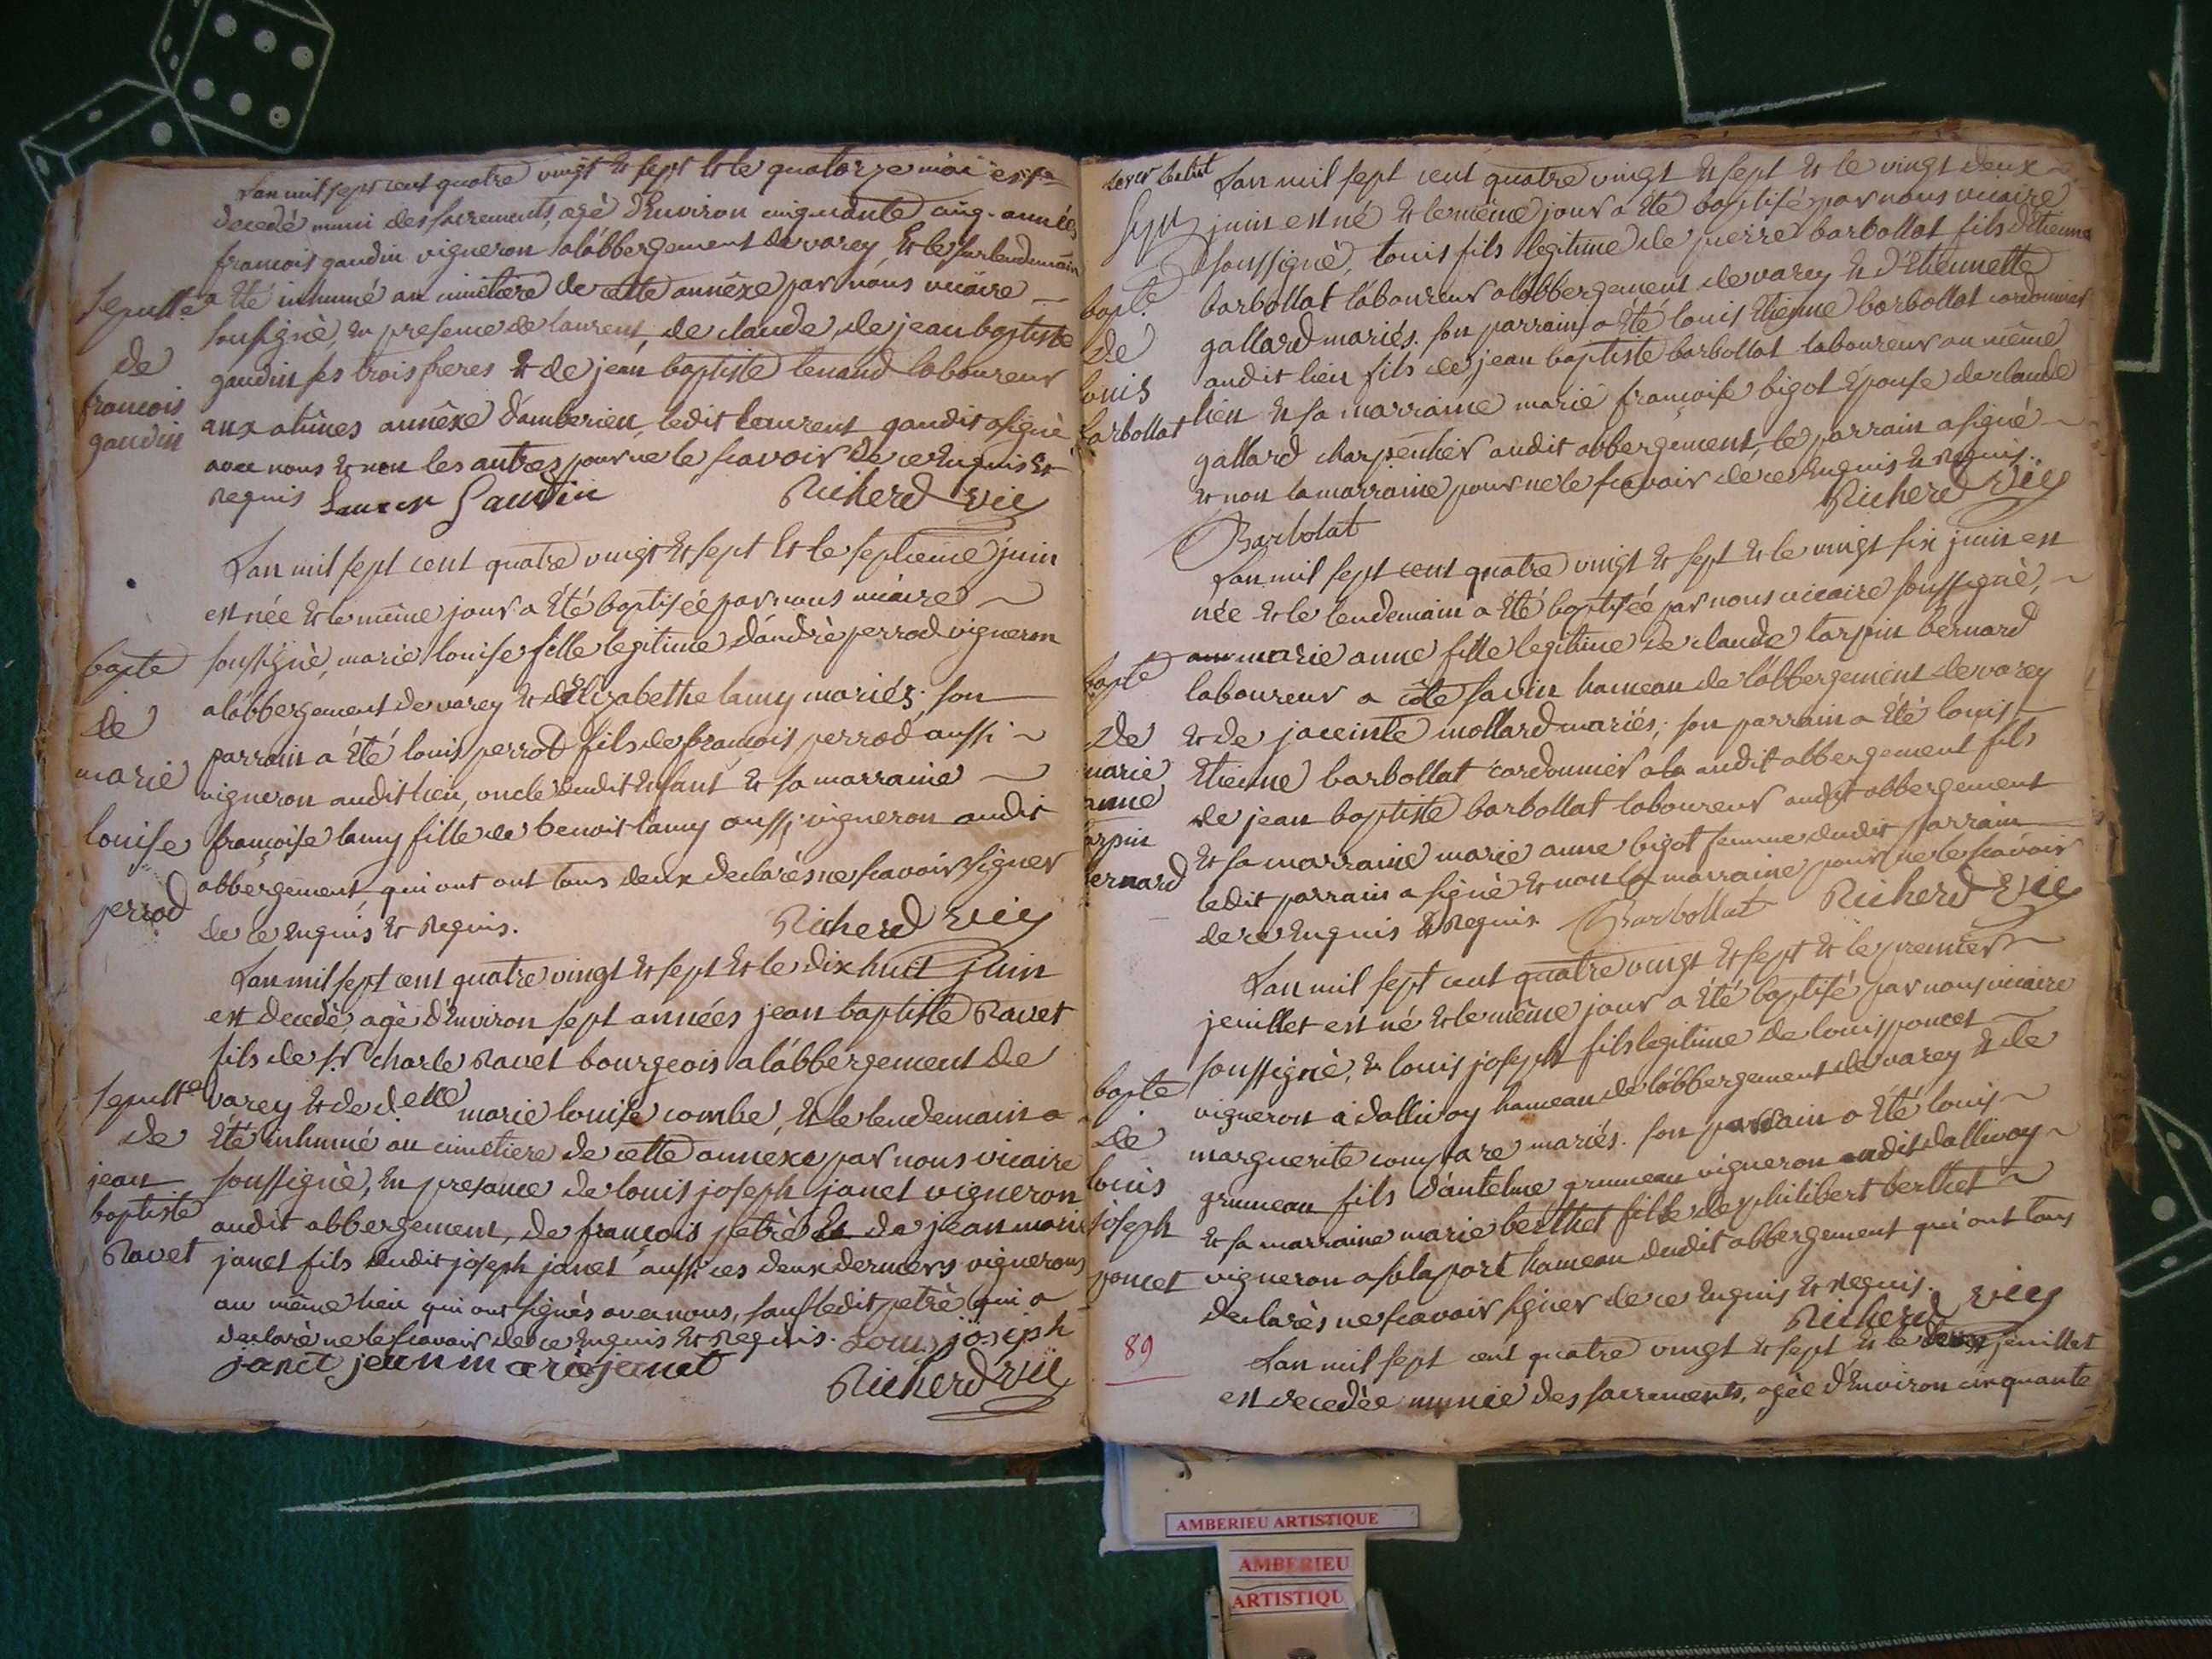 Lan mil sept cent quatre vingt et sept et le quatorze mai est
decedé muni des sacrements, agé d'Environ cinquante cinq années
francois gaudin vigneron a labbergement de varey, et le surlendemain
sepult.e a été inhumé au cimetiere de cette annêxe par nous vicaire
soussigné, en presence de laurent, de claude, de jean baptiste
de gaudin ses trois freres et de jean baptiste tenand laboureur
francois aux alimes annêxe d'amberieu, ledit laurent gaudit a signé
gaudin avec nous et non les autres pour ne le scavoir de ce Enquis et
Requis Gaudin Richerd vic
Lan mil sept cent quatre vingt et sept et le septieme juin
est née et le même jour a été baptisée par nous vicaire
bapte soussigné, marie louise fille legitime d'andrè perrod vigneron
a labbergement de varey et d'Elizabethe lamy mariés; son
de parrain a été louis perrod fils de francois perrod aussi
marie vigneron audit lieu, oncle dudit enfant et sa marraine
louise francoise lamy fille de benoit lamy aussi vigneron audit
abbergement, qui ont ont tous deux declarés ne scavoir signer
perrod de ce Enquis et Requis. Richerd vic
Lan mil sept cent quatre vingt et sept et le dix huit juin
est decedè, agè d'Environ sept années jean baptiste Ravet
fils de sr charle Ravet bourgeois a labbergement de
sepult.e varey et de d.elle marie louise combe, et le lendemain a
de été inhumé au cimetiere de cette annexe par nous vicaire
jean soussignè, En presance de louis joseph janet vigneron
baptiste audit abbergement, de francois petrè et de jean marie
Ravet janet fils dudit joseph janet aussi ces deux derniers vignerons
au même lieu qui ont signés avec nous, sauf ledit petrè qui a
declarè ne le scavoir de ce Enquis et Requis. Louis joseph
janet jean marie janet Richerd vic
Lan mil sept cent quatre vingt et sept et le vingt deux
juin est né et le même jour a été baptisé par nous vicaire
soussigné, louis fils legitime de pierre barbollat fils d'Etienne
bapt.e barbollat laboureur a labbergement de varey et d'Etiennette
de gallard mariés. son parrain a été louis Etienne barbollat cordonnier
louis audit lieu fils de jean baptiste barbollat laboureur au même
barbollat lieu et sa marraine marie francoise bigot Epouse de claude
gallard charpentier audit abbergement, le parrain a signé
et non la marraine pour ne le scavoir de ce Enquis et Requis.
Barbolat Richerd vic
Lan mil sept cent quatre vingt et sept et le vingt six juin est
née et le lendemain a été baptisée par nous vicaire soussignè,
bapte marie anne fille legitime de claude tarpin bernard
laboureur a côte savin hameau de labbergement de varey
de et de jaceinte mollard mariés; son parrain a été louis
marie Etienne barbollat cordonnier audit abbergement fils
anne de jean baptiste barbollat laboureur audit abbergement
tarpin et sa marraine marie anne bigot femme dudit parrain
bernard ledit parrain a signè et non la marraine pour ne le scavoir
de ce Enquis et Requis. Barbollat Richerd vic
Lan mil sept cent quatre vingt et sept et le premier
jeuillet est né et le même jour a été baptisé par nous vicaire
soussignè, louis joseph fils legitime de louis poncet
bapte vigneron a dallivoy hameau de labbergement de varey et de
de marguerite compare mariés. son parrain a été louis
louis gruneau fils d'antelme gruneau vigneron audit dallivoy
joseph et sa marraine marie berthet fille de philibert berthet
poncet vigneron a solaport hameau dudit abbergement qui ont tous
declarès ne scavoir signer de ce Enquis et Requis.
Richerd vic
89 Lan mil sept cent quatre vingt et sept et le jeuillet
est decedèe munie des sacrements, agèe d'Environ cinquante
AMBERIEU ARTISTIQUE
AMBERIEU
ARTISTIQU